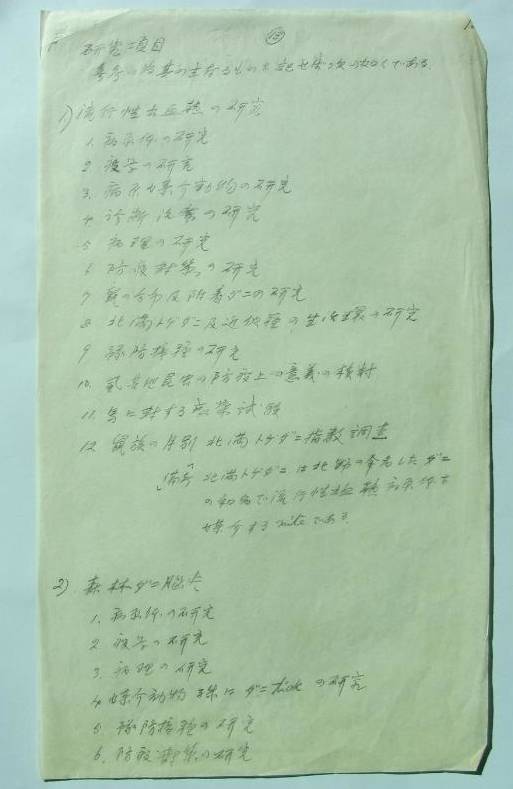 研究項目
1) 流行性出血熱の研究
1. 病原体の研究
2 疫学の研究
3. 病原媒介動物の研究
4 診断治療の研究
5 病理の研究
6 防疫対策の研究
7 鼠の分布及附着ダニの研究
8 北満トゲダニ及近似種の生活環の研究
9 予防接種の研究
10. 昆虫の防疫上の意義の検討
11. 馬に対する感染試験
12 鼠族の月別北満トゲダニ指数調査
備考 北満トゲダニは北野の発見したダニ
の動物で流行性出血熱病原体を
媒介するmiteである
2) 森林ダニ脳炎
1. 病原体の研究
2 疫学の研究
3 病理の研究
4 媒介動物殊にダニ の研究
5 予防接種の研究
6. 防疫対策の研究